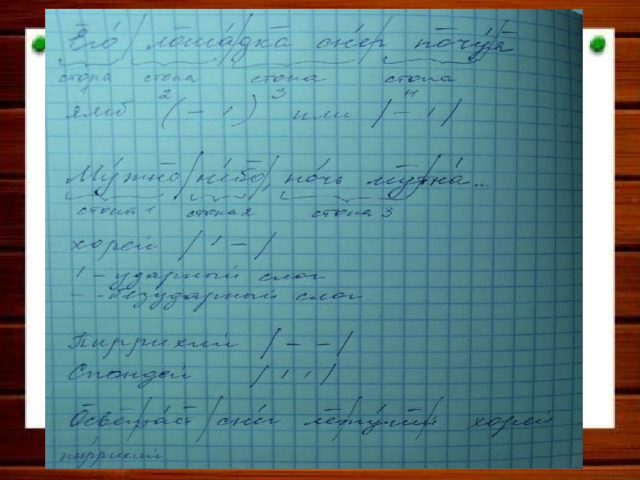 Его́/ лоша́/дка снег почу́/я
стопа стопа стопа стопа
1 2 3 4
ямб ( – ı ) или / – ı /
Му́тно/не́бо/, но́чь му/тна́...
стопа 1 стопа 2 стопа 3
хорей / ı – /
ı – ударный слог
– - безударный слог
Пиррихий / – – /
Спондей / ı ı /
Освеща́/ет/сне́г лету́чий/ хорей
пиррихий